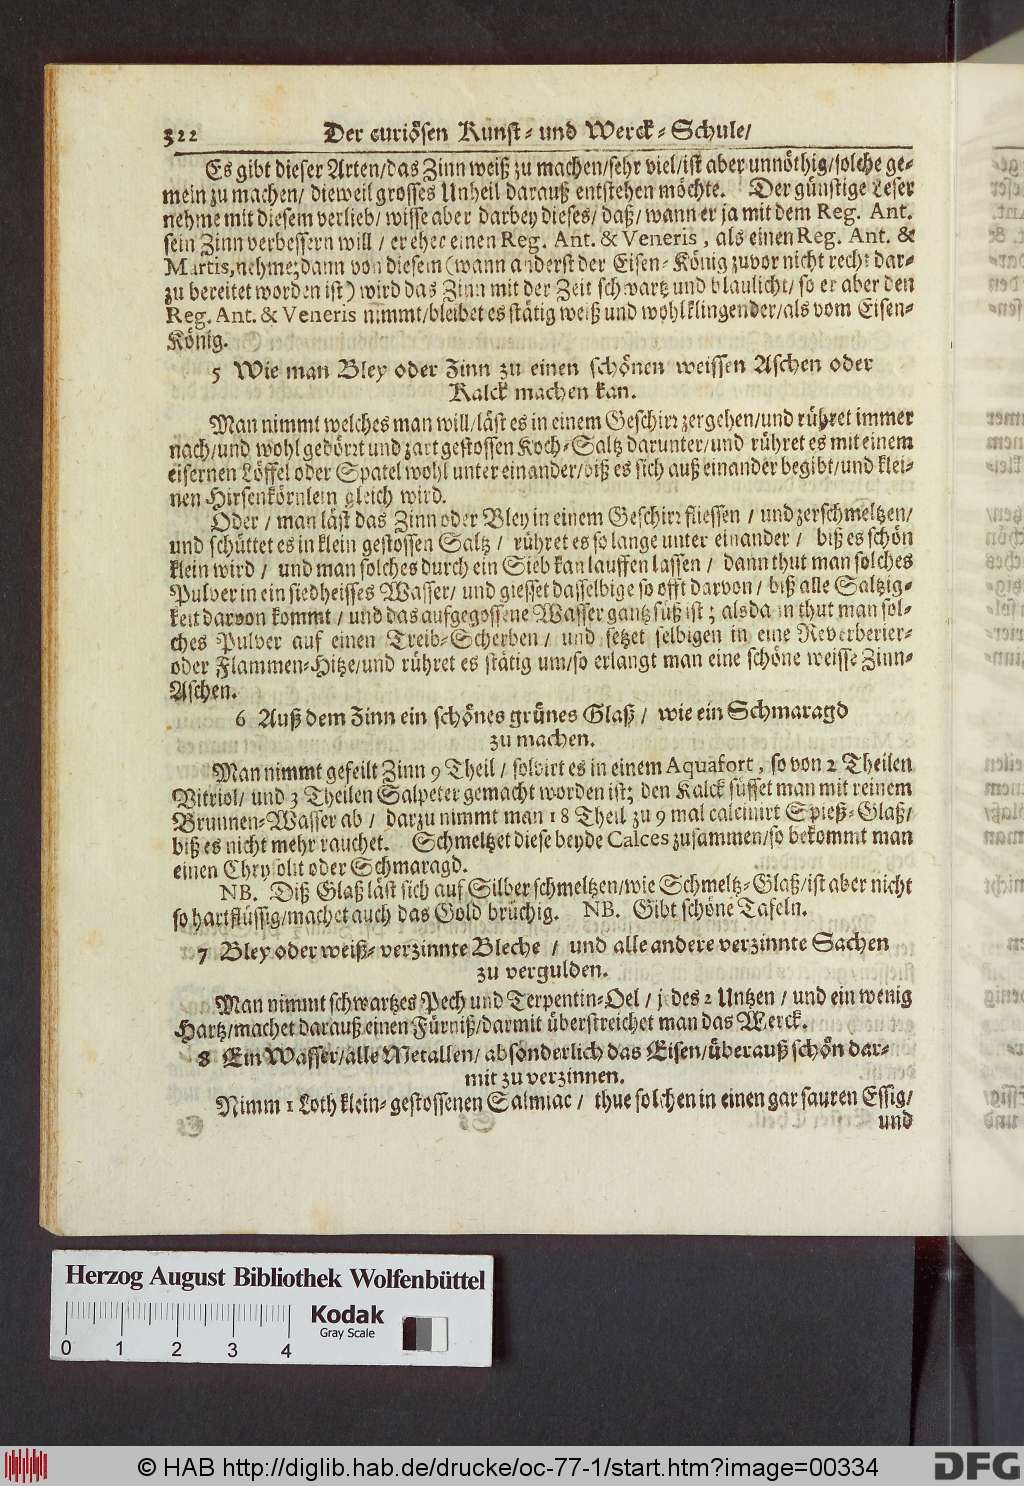 322 Der curiösen Kunst- und Werck-Schule/
Es gibt dieser Arten/das Zinn weiß zu machen/sehr viel/ist aber unnöthig/solche ge-
mein zu machen/ dieweil grosses Unheil darauß entstehen möchte. Der günstige Leser
nehme mit diesem verlieb/ wisse aber darbey dieses/ daß/ wann er ja mit dem Reg. Ant.
sein Zinn verbessern will / er ehee einen Reg. Ant. & Veneris, als einen Reg. Ant. &
Martis, nehme; dann von diesem (wann anderst der Eisen-König zuvor nicht recht dar-
zu bereitet worden ist) wird das Zinn mit der Zeit schwartz und blaulicht/ so er aber den
Reg. Ant. & Veneris nimmt/bleibet es stätig weiß und wohlklingender/als vom Eisen-
König.
5 Wie man Bley oder Zinn zu einen schönen weissen Aschen oder
Kalck machen kan.
Man nimmt welches man will/läst es in einem Geschirr zergehen/und rühret immer
nach/und wohl gedörrt und zart gestossen Koch-Saltz darunter/und rühret es mit einem
eisernen Löffel oder Spatel wohl unter einander/biß es sich auß einander begibt/und klei-
nen Hirsenkörnlein gleich wird.
Oder / man läst das Zinn oder Bley in einem Geschirr fliessen / und zerschmeltzen/
und schüttet es in klein gestossen Saltz / rühret es so lange unter einander / biß es schön
klein wird / und man solches durch ein Sieb kan lauffen lassen / dann thut man solches
Pulver in ein siedheisses Wasser/ und giesset dasselbige so offt darvon / biß alle Saltzig-
keit darvon kommt / und das aufgegossene Wasser gantz süß ist; alsdann thut man sol-
ches Pulver auf einen Treib-Scherben / und setzet selbigen in eine Reverberier-
oder Flammen-Hitze/und rühret es stätig um/so erlangt man eine schöne weisse Zinn-
Aschen.
6 Auß dem Zinn ein schönes grünes Glaß / wie ein Schmaragd
zu machen.
Man nimmt gefeilt Zinn 9 Theil / solvirt es in einem Aquafort, so von 2 Theilen
Vitriol/ und 3 Theilen Salpeter gemacht worden ist; den Kalck süsset man mit reinem
Brunnen-Wasser ab / darzu nimmt man 18 Theil zu 9 mal calcinirt Spieß-Glaß/
biß es nicht mehr rauchet. Schmeltzet diese beyde Calces zusammen/so bekommt man
einen Chrysolit oder Schmaragd.
NB. Diß Glaß läst sich auf Silber schmeltzen/wie Schmeltz-Glaß/ist aber nicht
so hartflüssig/machet auch das Gold brüchig. NB. Gibt schöne Tafeln.
7 Bley oder weiß-verzinnte Bleche / und alle andere verzinnte Sachen
zu vergulden.
Man nimmt schwartzes Pech und Terpentin-Oel / jedes 2 Untzen / und ein wenig
Hartz/machet darauß einen Fürniß/darmit überstreichet man das Werck.
8 Ein Wasser/alle Metallen/ absonderlich das Eisen/überauß schön dar-
mit zu verzinnen.
Nimm 1 Loth klein-gestossenen Salmiac / thue solchen in einen gar sauren Essig/
und
Herzog August Bibliothek Wolfenbüttel
Kodak
Gray Scale
0 1 2 3 4
© HAB http://diglib.hab.de/drucke/oc-77-1/start.htm?image=00334
DFG